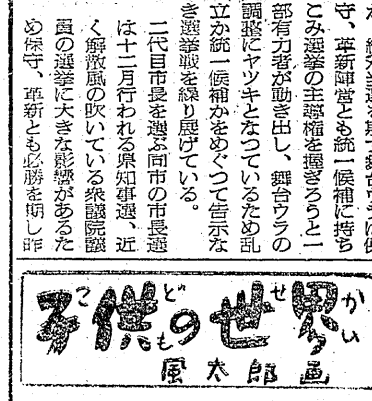 守、革新陣営とも統一候補に持ち
こみ選挙の主導権を握ぎろうと一
部有力者が動き出し、舞台ウラの
調整にヤツキとなつているため乱
立か統一候補かをめぐつて告示な
き選挙戦を繰り展げている。
二代目市長を選ぶ同市の市長選
は十二月行われる県知事選、近
く解散風の吹いている衆議院議
員の選挙に大きな影響があるた
め保守、革新とも必勝を期し昨
子供の世界
こどものせかい
風太郎画